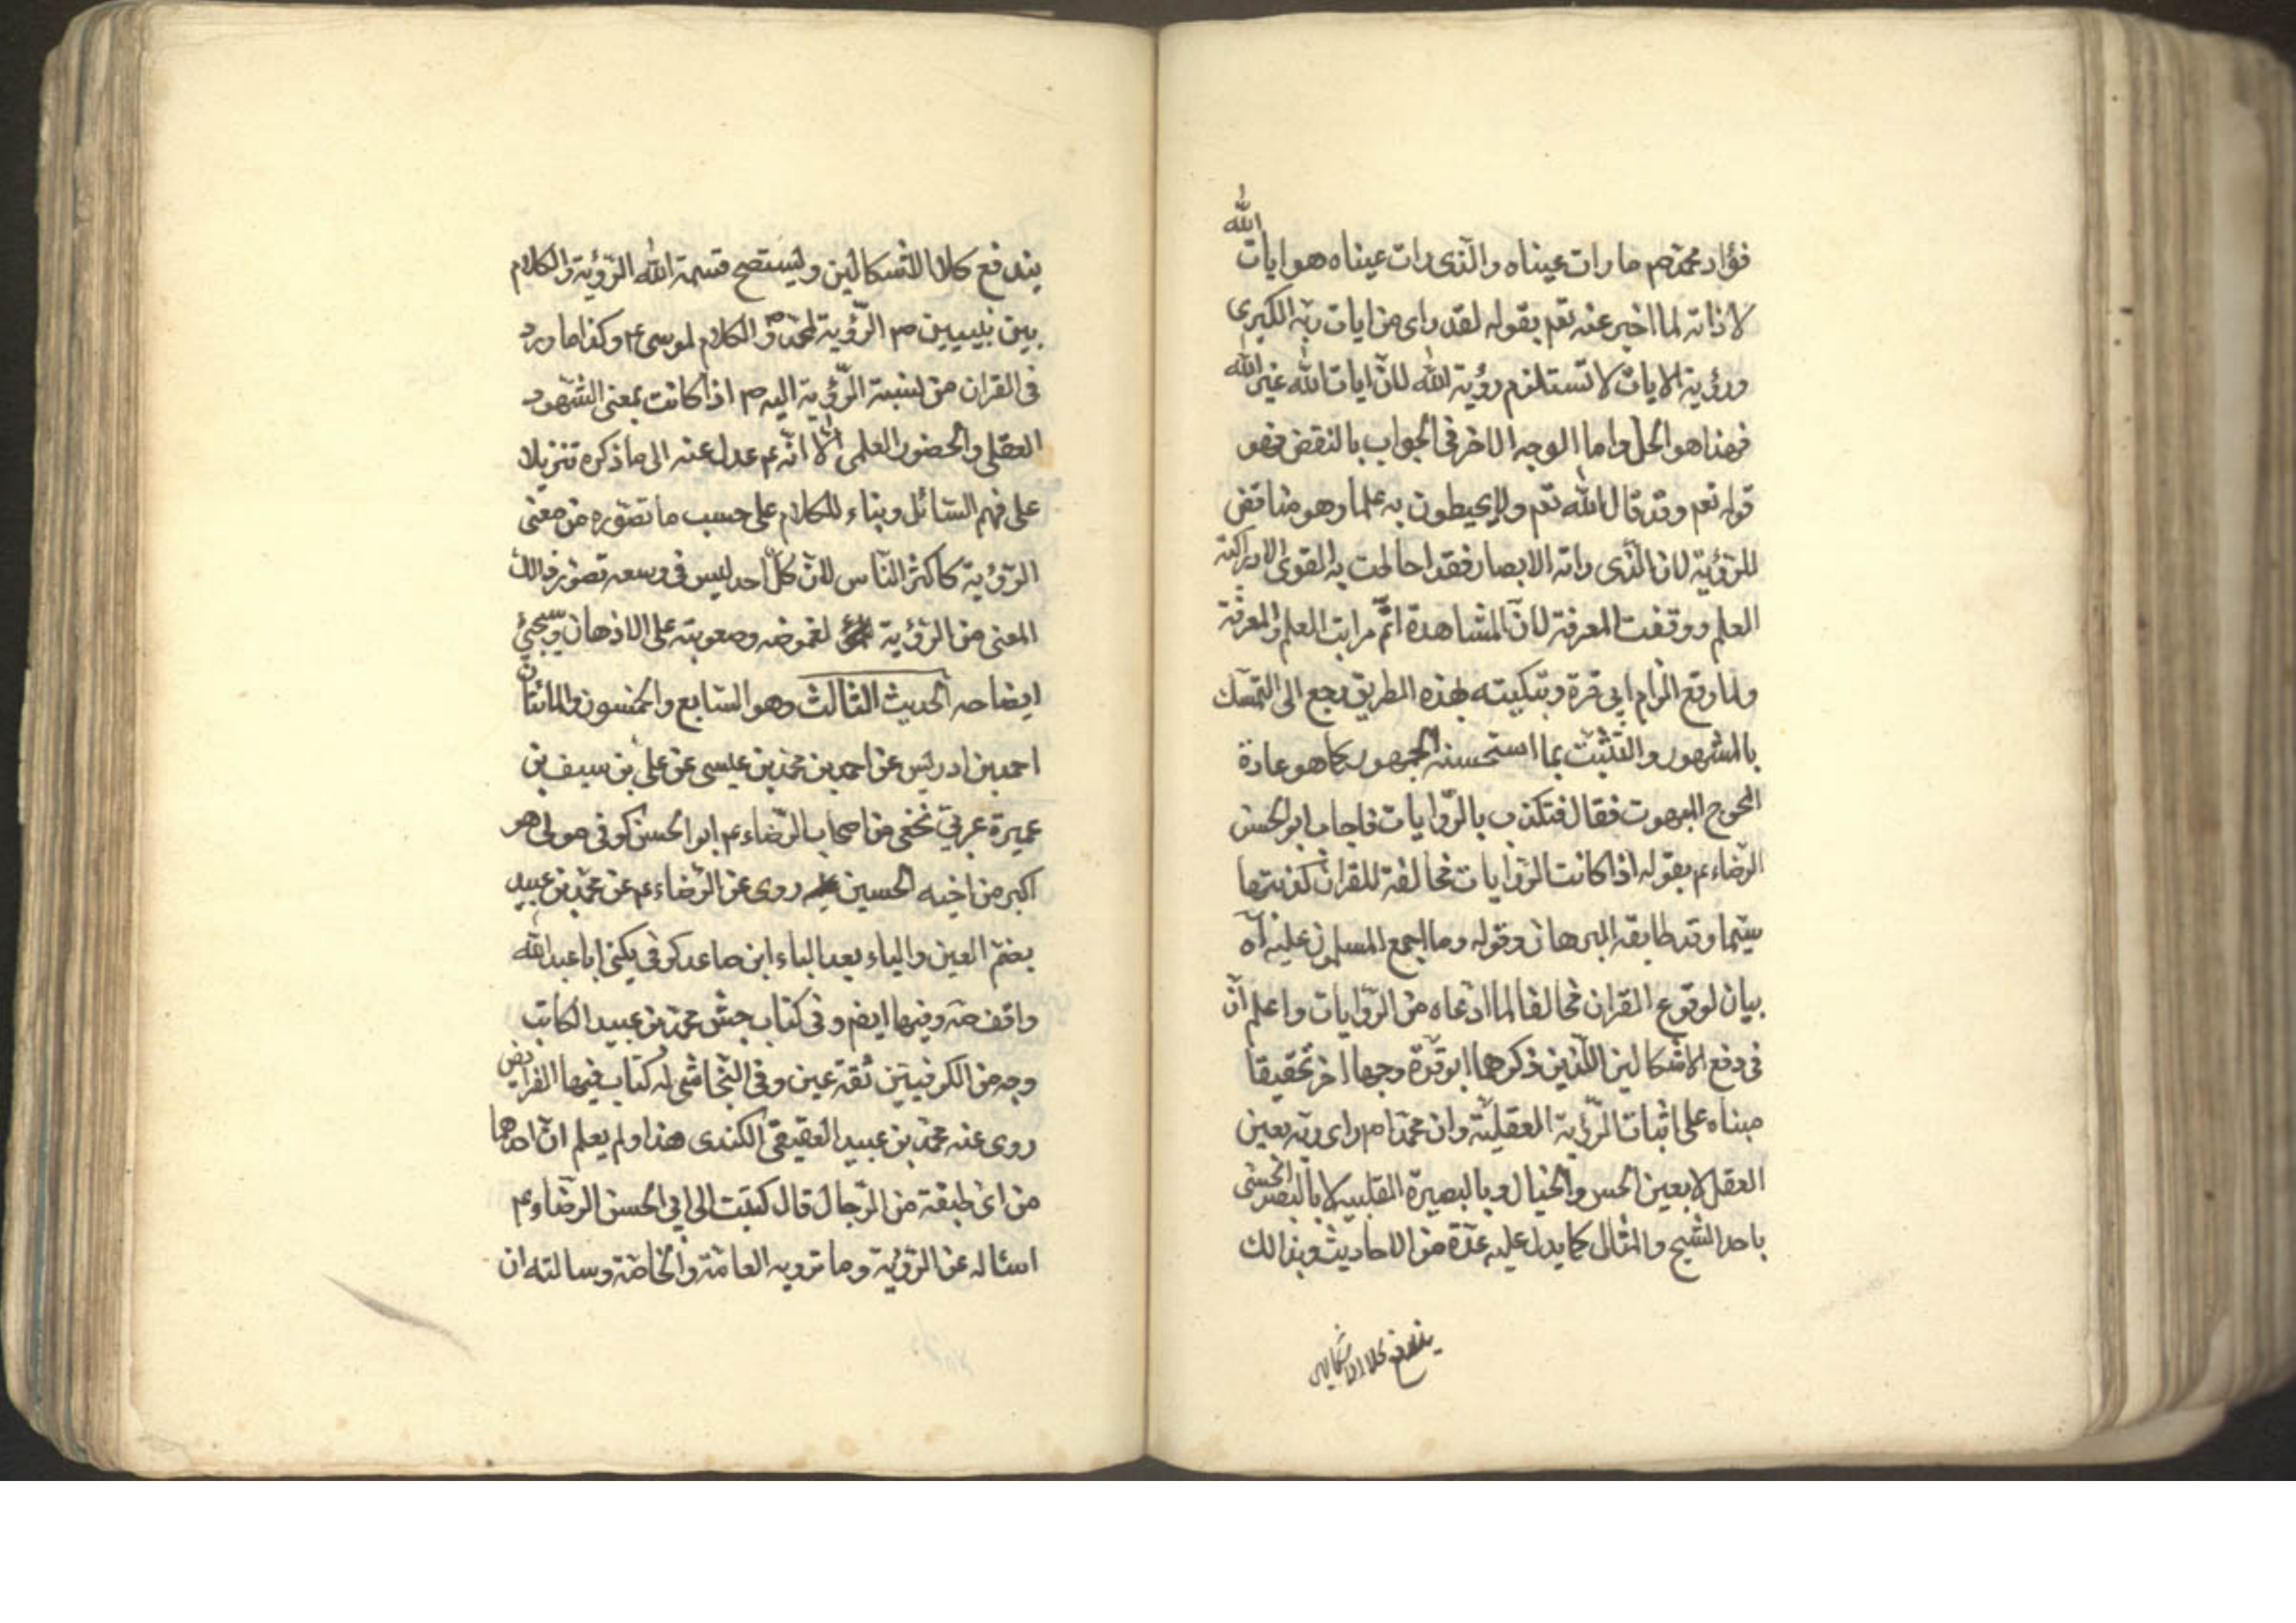 فؤاد محمد ص ما رات عيناه والذى رات عيناه هو ايات الله
لا ذاته لما اخبر عنه تعم بقوله لقد راى من ايات ربه الكبرى
ورؤية الايات لا تستلزم رؤية الله لان ايات الله غير الله
فهذا هو الحل واما الوجه الاخر فى الجواب بالنقض فهو
قوله تعم وقد قال الله تعم ولا يحيطون به علما وهو مناقض
للرؤية لان الذى راته الابصار فقد احاطت به القوى الادراكية
العلم ووقفت المعرفة لان المشاهدة اتم مراتب العلم والمعرفة
ولما وقع الزام ابى قرة وتبكيته بهذه الطريق رجع الى التمسك
بالمشهور والتثبت بما استحسنه الجمهور كما هو عادة
المحوج المبهوت فقال فتكذب بالروايات فاجاب ابو الحسن
الرضاء ع بقوله اذا كانت الروايات مخالفة للقران كذبتها
سيما وقد طابقه البرهان وقوله وما اجمع المسلمون عليه اه
بيان لوقوع القران مخالفا لما ادعاه من الروايات واعلم ان
فى دفع الاشكالين اللذين ذكرهما ابو قرة وجها اخر تحقيقا
مبناه على اثبات الرؤية العقلية وان محمدا ص راى ربه بعين
العقل لا بعين الحس والخيال وبالبصيرة القلبية لا بالبصر الحسى
باحد الشبح والمثال كما يدل عليه عدة من الاحاديث وبذالك
يندفع كلا الاشكالين
يندفع كلا الاشكالين وليستصح قسمة الله الرؤية والكلام
بين نبيين ص الرؤية لمحمد ص والكلام لموسى ع وكذا ما ورد
فى القران من نسبة الرؤية اليه ص اذا كانت بمعنى الشهود
العقلى والحضور العلمى الا انه ع عدل عنه الى ما ذكره تنزيلا
على فهم السائل وبناء للكلام على حسب ما تصوره من معنى
الرؤية كاكثر الناس لان كل احد ليس فى وسعه تصور ذالك
المعنى من الرؤية لغموضه وصعوبته على الاذهان وسيجئ
ايضاحه الحديث الثالث وهو السابع والخمسون والمائتان
احمد بن ادريس عن احمد بن محمد بن عيسى عن على بن سيف بن
عميرة عربى نخعى من اصحاب الرضاء ع ابو الحسن كوفى مولى هو
اكبر من اخيه الحسين روى عن الرضاء ع عن محمد بن عبيد
بضم العين والياء بعد الباء ابن صاعد كوفى يكنى ابا عبد الله
واقف صه وفيها ايضم وفى كتاب جش محمد بن عبيد الكاتب
وجه من الكوفيين ثقة عين وفى النجاشى له كتاب فيها الفرايض
روى عنه محمد بن عبيد العقيقى الكندى هذا ولم يعلم ان احدهما
من اى طبقة من الرجال قال كتبت الى ابى الحسن الرضاء ع
اسئاله عن الرؤية وما ترويه العامة والخاصة وسالته ان